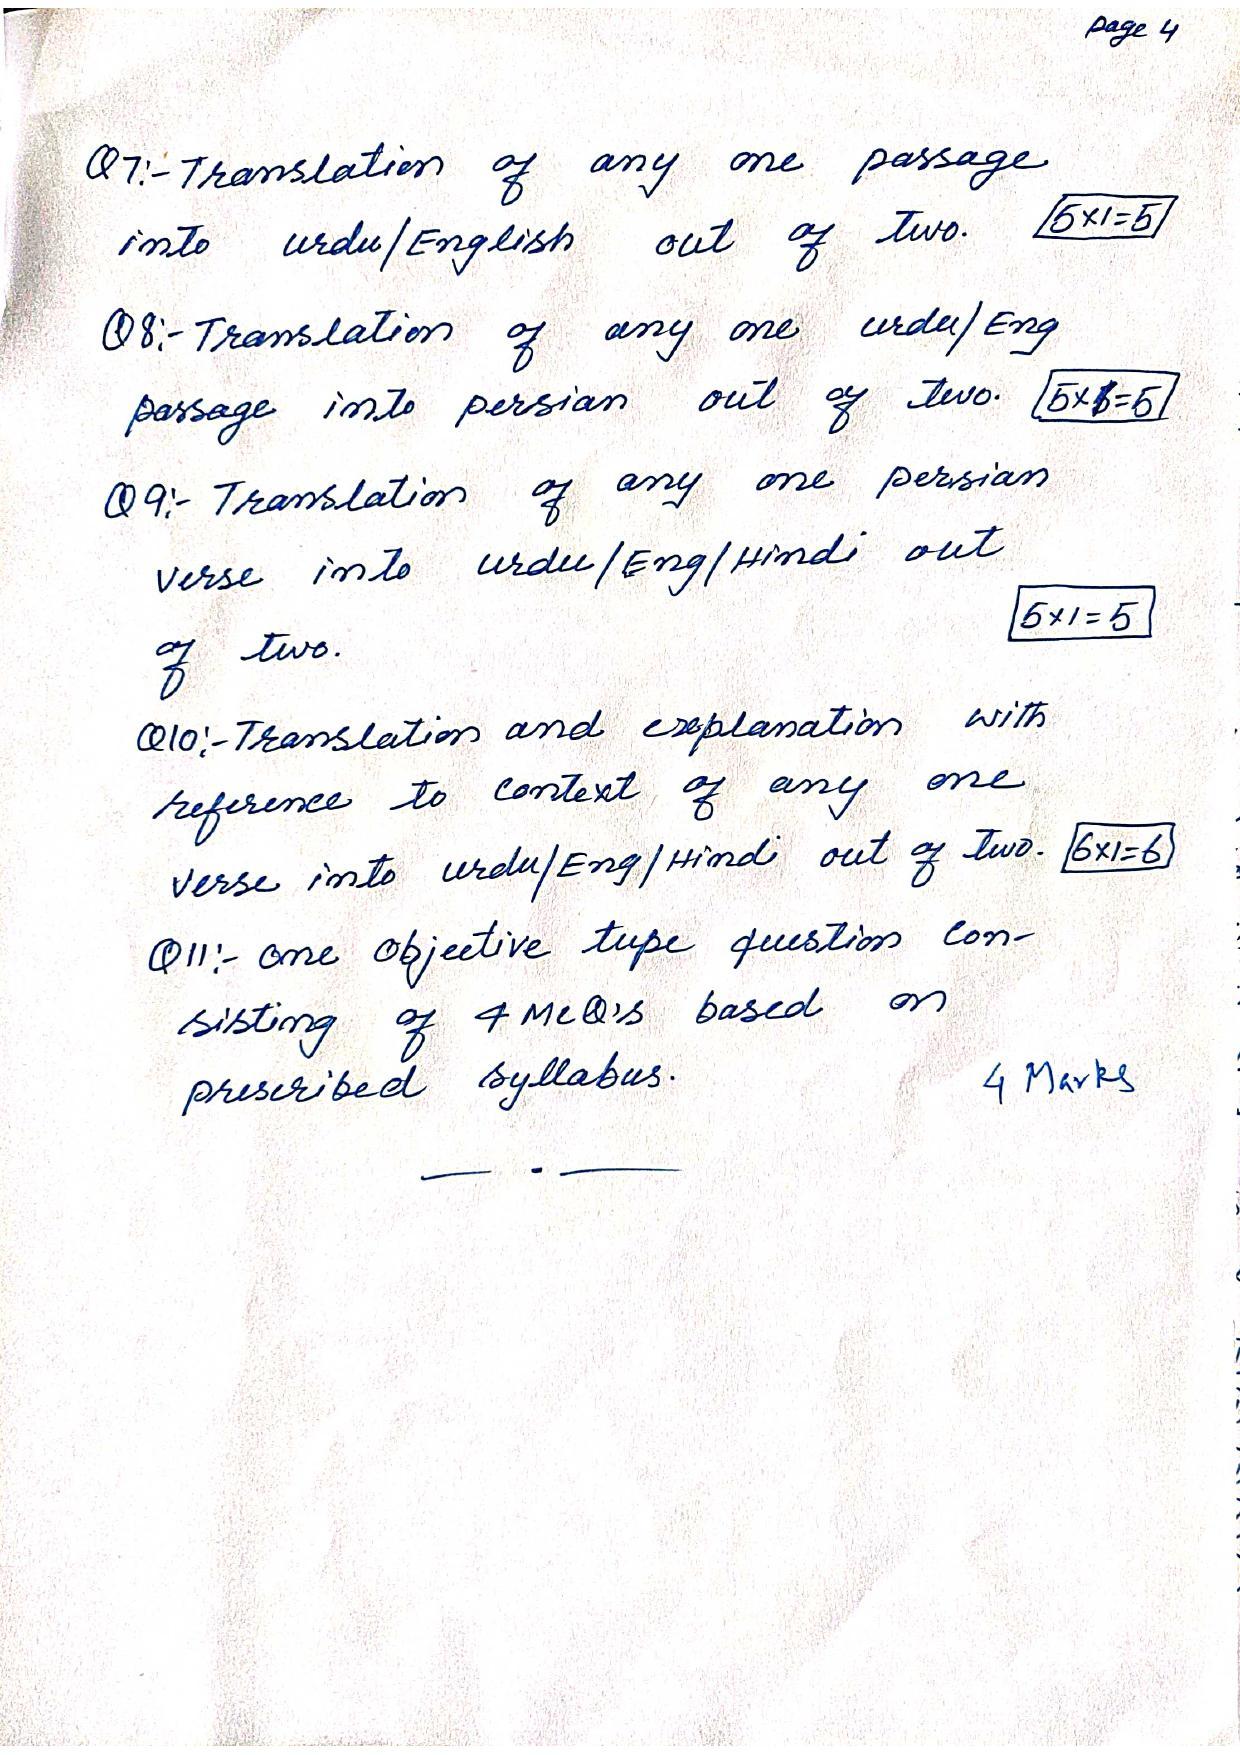 Page 4
Q7:- Translation of any one passage
into urdu/English out of two. 5×1=5
Q8:- Translation of any one urdu/Eng
passage into persian out of two. 5×1=5
Q9:- Translation of any one persian
verse into urdu/Eng/Hindi out
5×1=5
of two.
Q10:- Translation and explanation with
reference to context of any one
verse into urdu/Eng/Hindi out of two. 6×1=6
Q11:- one objective tupe question con-
sisting of 4 McQ's based on
prescribed syllabus. 4 Marks